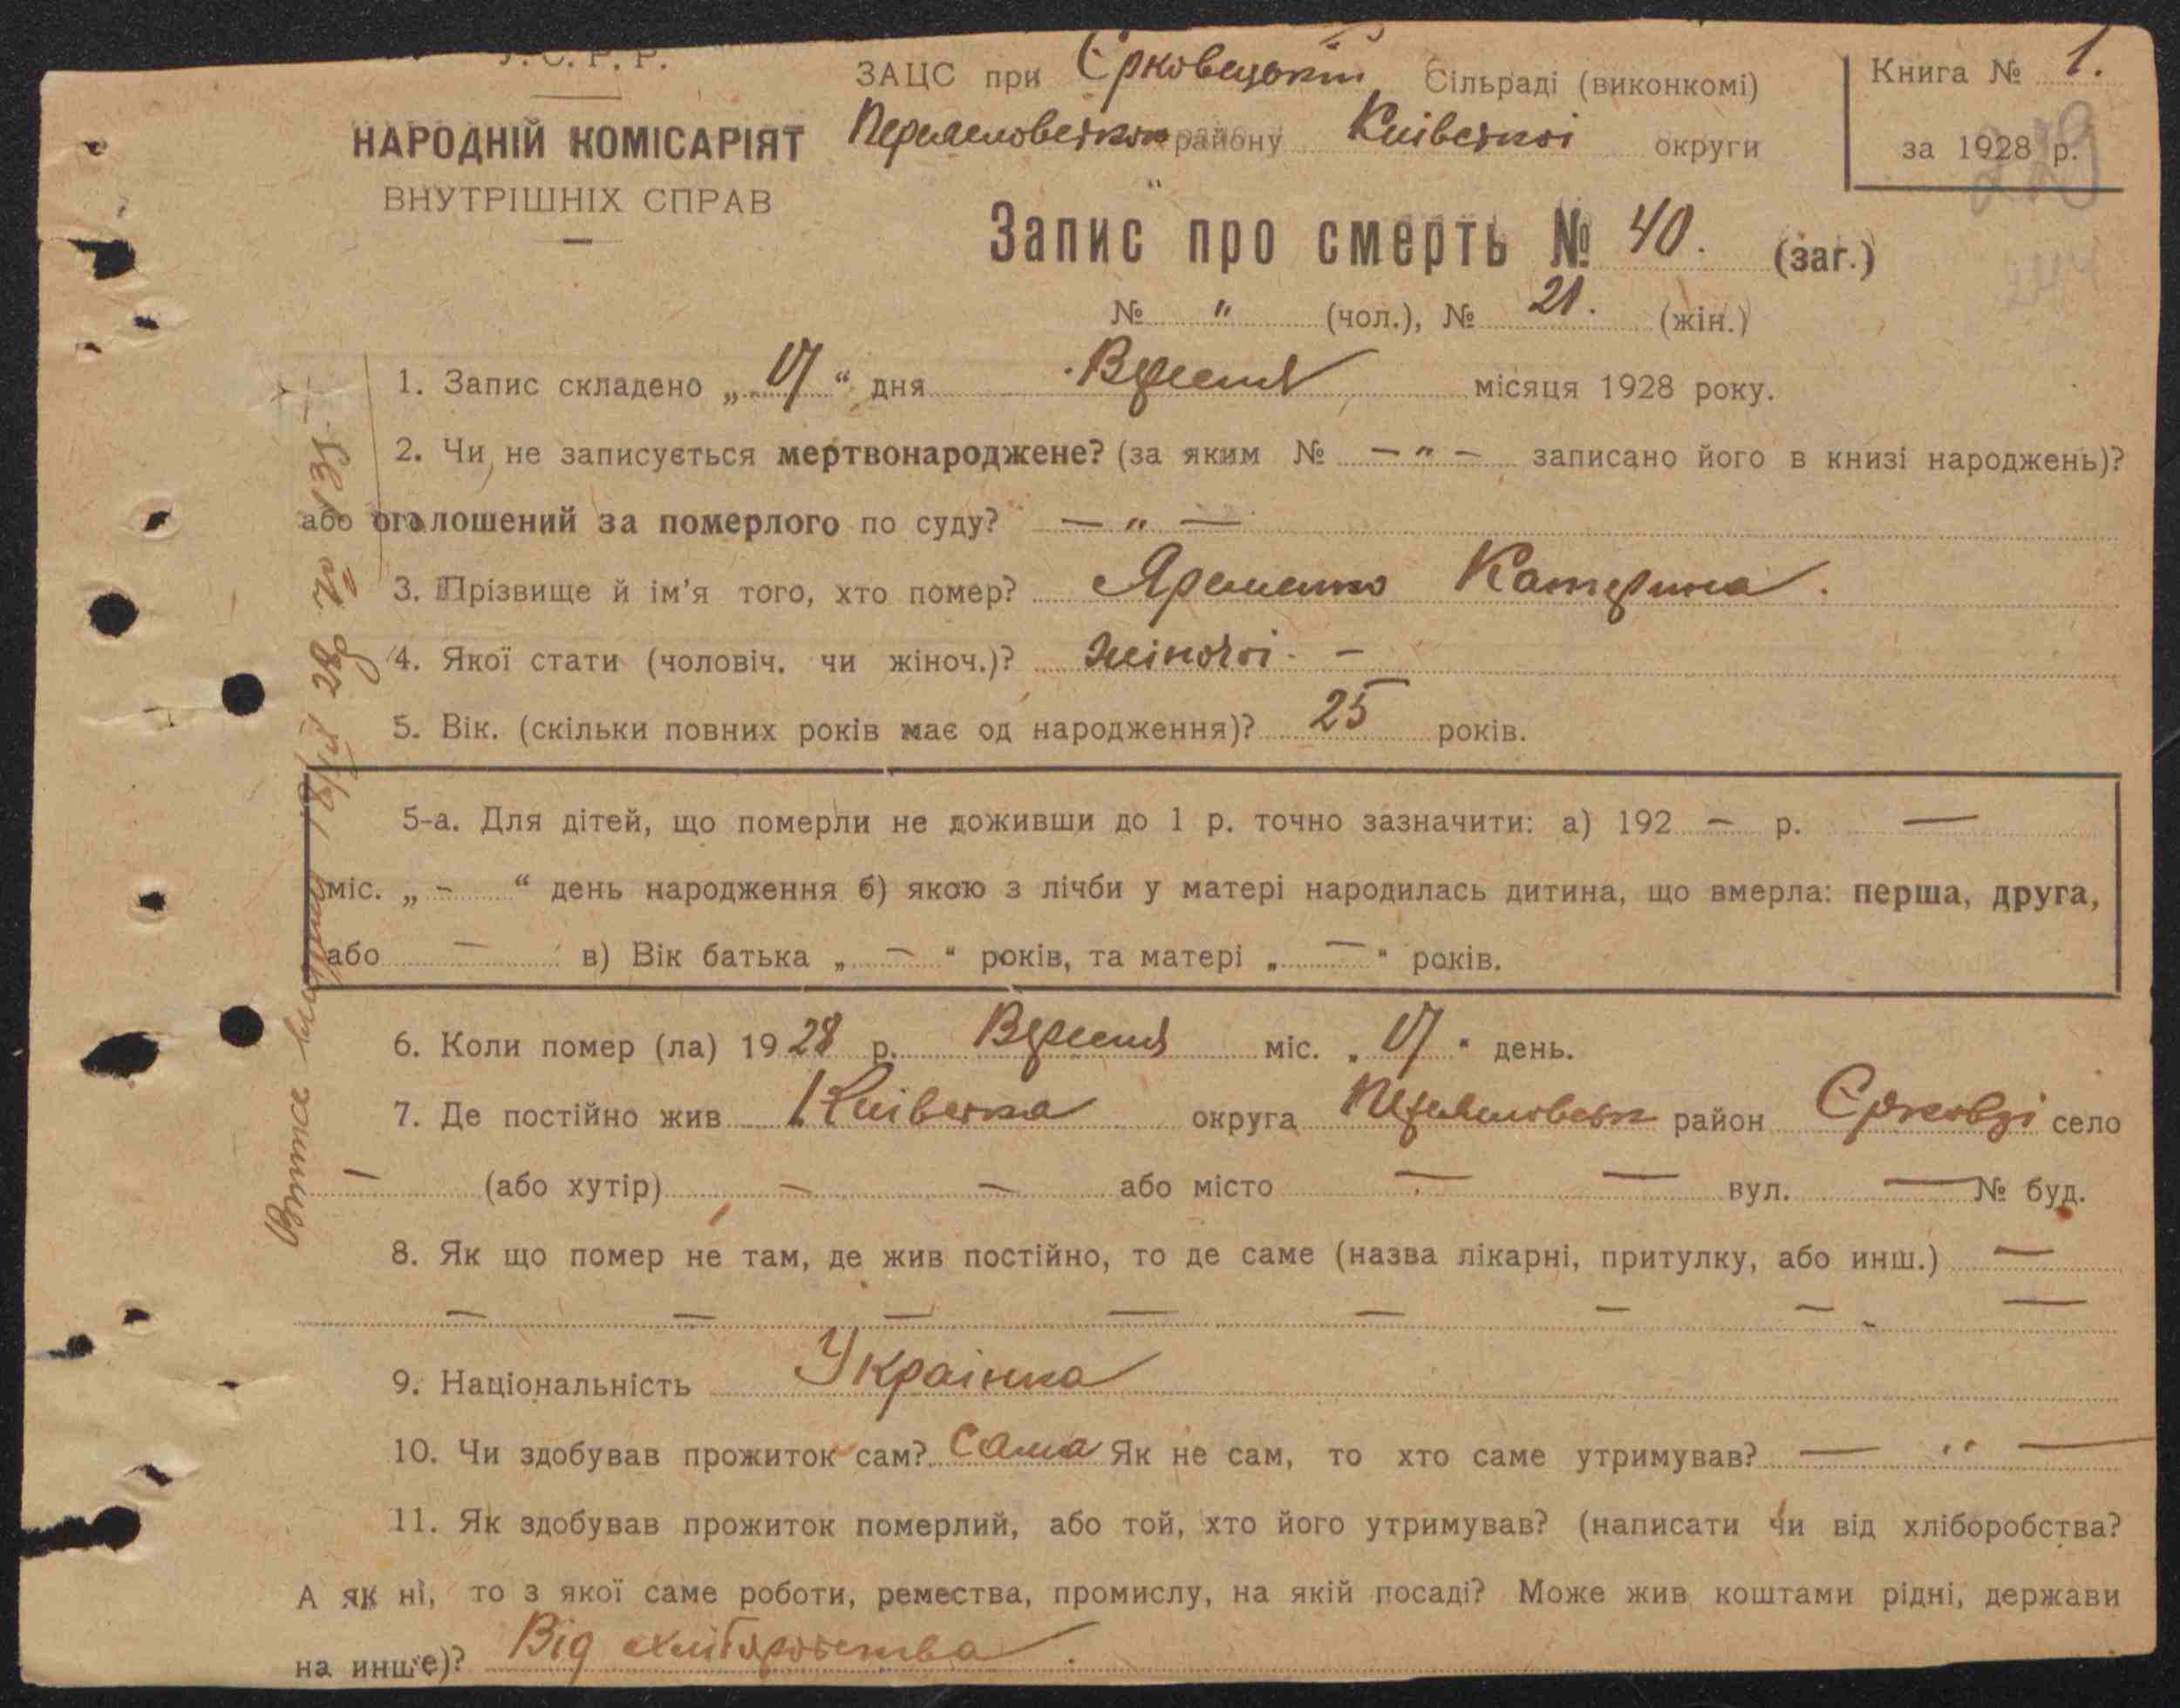 У. С. Р. Р.
НАРОДНІЙ КОМІСАРІЯТ
ВНУТРІШНІХ СПРАВ
ЗАЦС при Єрковецькій Сільраді (виконкомі)
району Київської округи
Книга № 1.
за 1928 р.
Запис про смерть № 40. (заг.)
№ " (чол.), № 21. (жін.)
1. Запис складено „ “ дня Вересня місяця 1928 року.
2. Чи не записується мертвонароджене? (за яким № — " — записано його в книзі народжень)?
або оголошений за померлого по суду? — " —
3. Прізвище й ім'я того, хто помер? Яременко Катерина.
4. Якої стати (чоловіч. чи жіноч.)? жіночої —
5. Вік. (скільки повних років має од народження)? 25 років.
5-а. Для дітей, що померли не доживши до 1 р. точно зазначити: а) 192 — р. —
міс. „ — “ день народження б) якою з лічби у матері народилась дитина, що вмерла: перша, друга,
або — в) Вік батька „ — “ років, та матері „ — “ років.
6. Коли помер (ла) 1928 р. Вересня міс. „ “ день.
7. Де постійно жив Київська округа район Єрковці село
— (або хутір) — — або місто — — вул. — № буд.
8. Як що помер не там, де жив постійно, то де саме (назва лікарні, притулку, або инш.) —
— — — — — — — —
9. Національність Українка
10. Чи здобував прожиток сам? Сама Як не сам, то хто саме утримував? — " —
11. Як здобував прожиток померлий, або той, хто його утримував? (написати чи від хліборобства?
А як ні, то з якої саме роботи, ремества, промислу, на якій посаді? Може жив коштами рідні, держави
на инше)? Від хліборобства.